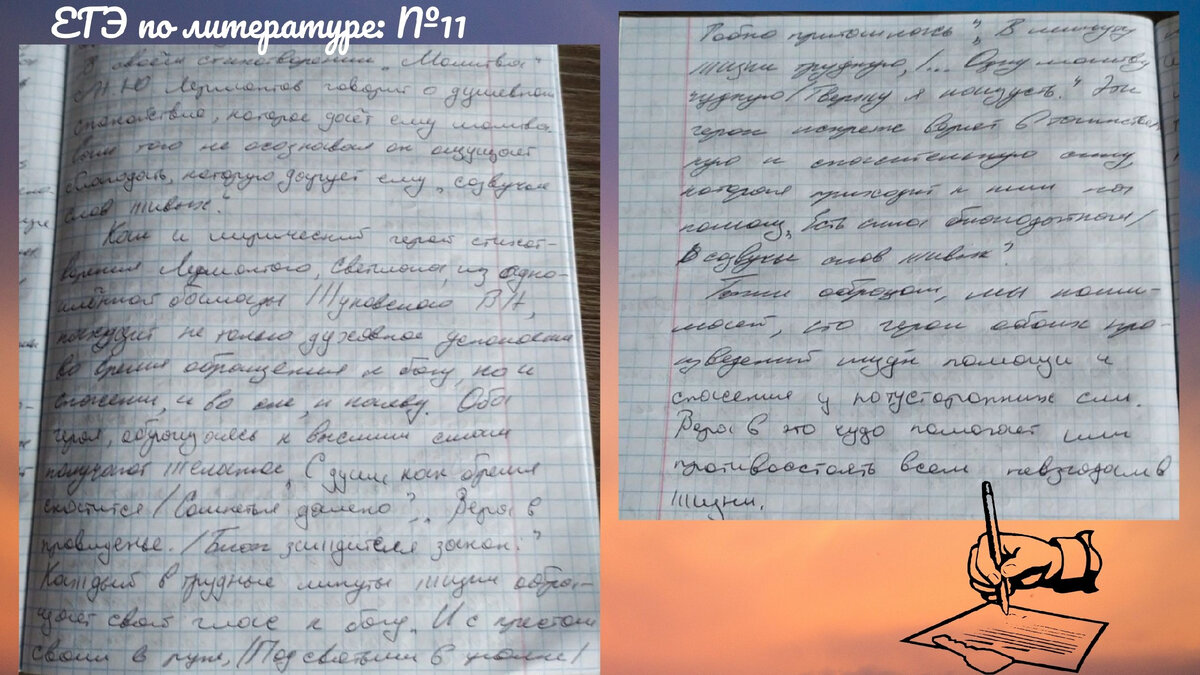 ЕГЭ по литературе: №11
В своём стихотворении „Молитва"
М.Ю Лермонтов говорит о душевном
спокойствии, которое даёт ему молитва.
того не осознавая он ощущает
благодать, которую дарует ему „созвучье
слов живых".
Как и лирический герой стихот-
ворения Лермонтова, Светлана, из одно-
имённой баллады Жуковского В.А,
не только духовное успокоение
во время обращения к богу, но и
спасение, и во сне, и наяву. Оба
героя, обращаясь к высшим силам
получают желаемое „С души как бремя
скатится / Сомненье далеко", „Вера в
провиденье. / Благ зиждителя закон:"
Каждый в трудные минуты жизни обра-
щает свой глас к богу „И с крестом
своим в руке, / Под святыми в уголке /
Робко притаилась", „В минуту
жизни трудную, /... Одну молитву
чудную / Твержу я наизусть." Эти
герои искренне верят в таинствен
ную и спасительную силу,
которая приходит к ним на
помощь „Есть сила благодатная /
В созвучье слов живых"
Таким образом, мы пони-
маем, что герои обоих про-
изведений ждут помощи и
спасения у потусторонних сил.
Вера в это чудо помогает им
противостоять всем невзгодам в
жизни.